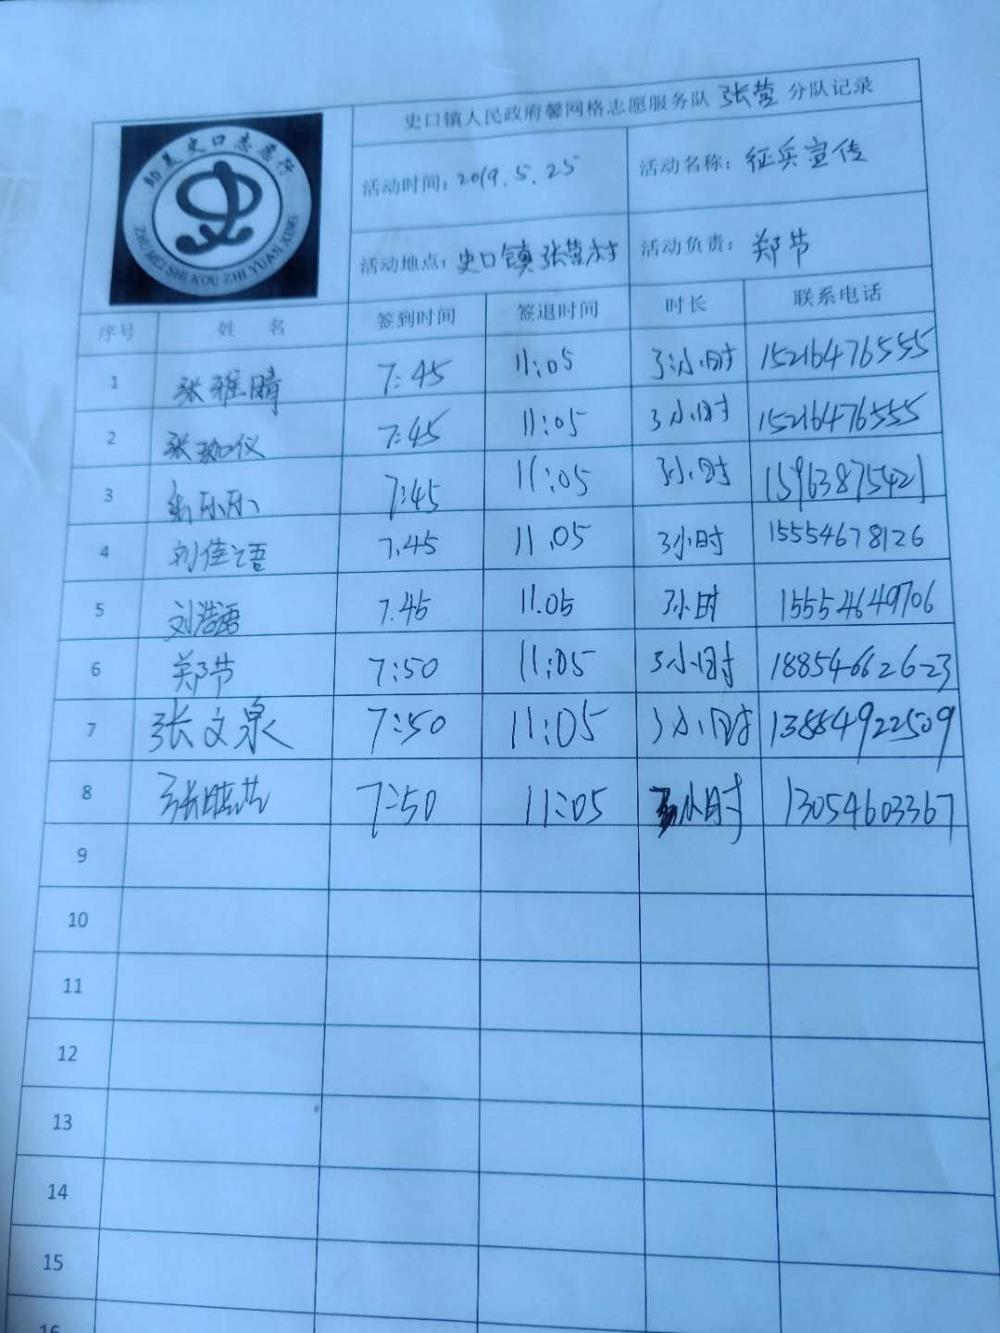 史口镇人民政府馨网格志愿服务队 张营 分队记录
助美史口志愿行
ZHU MEI SHI KOU ZHI YUAN XING
活动时间：2019.5.25 活动名称：征兵宣传
活动地点：史口镇张营村 活动负责：郑节
序号 姓 名 签到时间 签退时间 时长 联系电话
1 张雅晴 7:45 11:05 3小时 15216476555
2 张珈仪 7:45 11:05 3小时 15216476555
3 7:45 11:05 3小时 15963875421
4 刘佳语 7.45 11.05 3小时 15554678126
5 刘浩语 7.45 11.05 3小时 15554649706
6 郑节 7:50 11:05 3小时 18854662623
7 张文泉 7:50 11:05 3小时 13884922509
8 7:50 11:05 3小时 13054603367
9
10
11
12
13
14
15
16